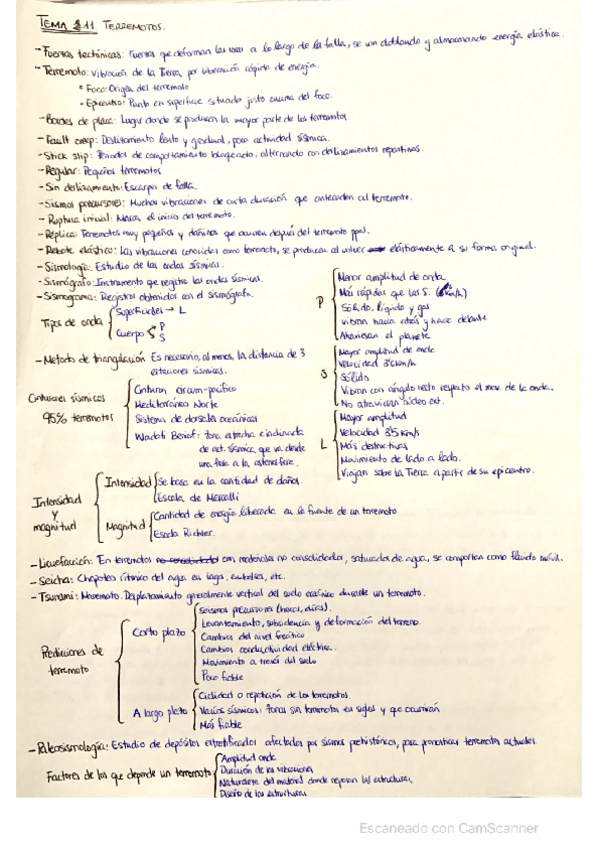 TEMA 11 TERREMOTOS.
- Fuerzas tectónicas: Fuerzas que deforman las rocas a lo largo de la falla, se van doblando y almacenando energía elástica.
- Terremoto: Vibración de la Tierra por liberación rápida de energía.
• Foco: Origen del terremoto
• Epicentro: Punto en superficie situado justo encima del foco.
- Bordes de placa: Lugar donde se producen la mayor parte de los terremotos.
- Fault creep: Deslizamiento lento y gradual, poca actividad sísmica.
- Stick slip: Periodos de comportamiento bloqueado, alternando con deslizamientos repentinos.
- Regular: Pequeños terremotos
- Sin deslizamiento: Escarpes de falla.
- Sismos precursores: Muchas vibraciones de corta duración que anteceden al terremoto.
- Ruptura inicial: Marca el inicio del terremoto.
- Réplica: Terremotos muy pequeños y dañinos que ocurren después del terremoto ppal.
- Rebote elástico: Las vibraciones conocidas como terremoto, se producen al volver elásticamente a su forma original.
- Sismología: Estudio de las ondas sísmicas.
- Sismógrafo: Instrumento que registra las ondas sísmicas.
- Sismograma: Registros obtenidos con el sismógrafo.
Tipos de onda
Superficiales → L
Cuerpo
P
S
P
Menor amplitud de onda
Más rápidas que las S.
Sólido, líquido y gas
Vibran hacia atrás y hacia delante
Atraviesan el planeta
S
Mayor amplitud de onda
Velocidad
Sólido
Vibran con ángulo recto respecto el mov. de la onda.
No atraviesan núcleo ext.
L
Mayor amplitud
Velocidad 3'5 km/s
Más destructivas
Movimiento de lado a lado.
Viajan sobre la Tierra a partir de su epicentro.
- Método de triangulación Es necesario, al menos, la distancia de 3
estaciones sísmicas.
Cinturones sísmicos
95% terremotos
Cinturón circum-pacífico
Mediterráneo Norte
Sistema de dorsales oceánicas
Wadati Benioff: zona estrecha e inclinada
de act. sísmica, que va desde
una fosa a la astenosfera.
Intensidad
y
magnitud
Intensidad
Se basa en la cantidad de daños.
Escala de Mercalli
Magnitud
Cantidad de energía liberada en la fuente de un terremoto
Escala Richter.
- Licuefacción: En terremotos con materiales no consolidados, saturados de agua, se comportan como fluido móvil.
- Seicha: Chapoteo rítmico del agua en lagos, embalses, etc.
- Tsunami: Maremoto. Desplazamiento generalmente vertical del suelo oceánico durante un terremoto.
Predicciones de
terremoto
Corto plazo
Seísmos precursores (horas, días).
Levantamiento, subsidencia y deformación del terreno.
Cambios del nivel freático
Cambios conductividad eléctrica.
Movimiento a través del suelo
Poco fiable
A largo plazo
Ciclidad o repetición de los terremotos
Vacíos sísmicos: zonas sin terremotos en siglos y que ocurrirán
Más fiable
- Paleosismología: Estudio de depósitos estratificados afectados por sismos prehistóricos, para pronosticar terremotos actuales.
Factores de los que depende un terremoto
Amplitud onda
Duración de las vibraciones
Naturaleza del material donde reposan las estructuras
Diseño de las estructuras
Escaneado con CamScanner